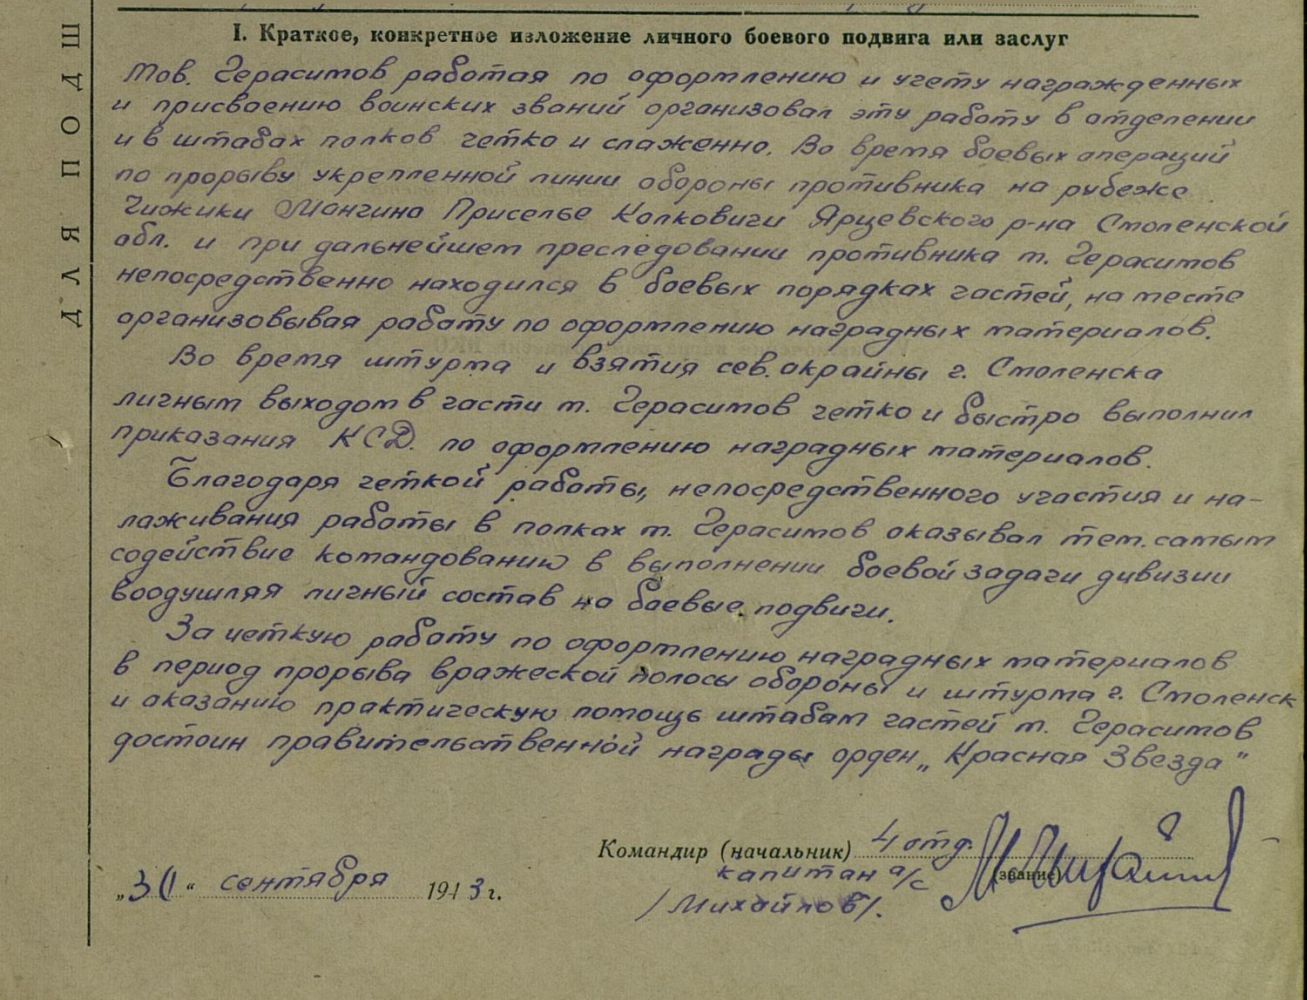 ДЛЯ ПОДШ
I. Краткое, конкретное изложение личного боевого подвига или заслуг
Тов. Герасимов работая по оформлению и учету награжденных
и присвоению воинских званий организовал эту работу в отделении
и в штабах полков четко и слаженно. Во время боевых операций
по прорыву укрепленной линии обороны противника на рубеже
Чижики Манчино Приселье Колковичи Ярцевского р-на Смоленской
обл. и при дальнейшем преследовании противника т. Герасимов
непосредственно находился в боевых порядках частей, на месте
организовывая работу по оформлению наградных материалов.
Во время штурма и взятия сев. окрайны г. Смоленска
личным выходом в части т. Герасимов четко и быстро выполнил
приказания КСД. по оформлению наградных материалов.
Благодаря четкой работы, непосредственного участия и на-
лаживания работы в полках т. Герасимов оказывал тем. самым
содействие командованию в выполнении боевой задачи дивизии
воодушляя личный состав на боевые подвиги.
За четкую работу по оформлению наградных материалов
в период прорыва вражеской полосы обороны и штурма г. Смоленск
и оказанию практическую помощь штабам частей т. Герасимов
достоин правительственной награды орден „Красная Звезда"
Командир (начальник) 4 отд.
капитан а/с (звание)
/Михайлов/.
„30" сентября 1943 г.